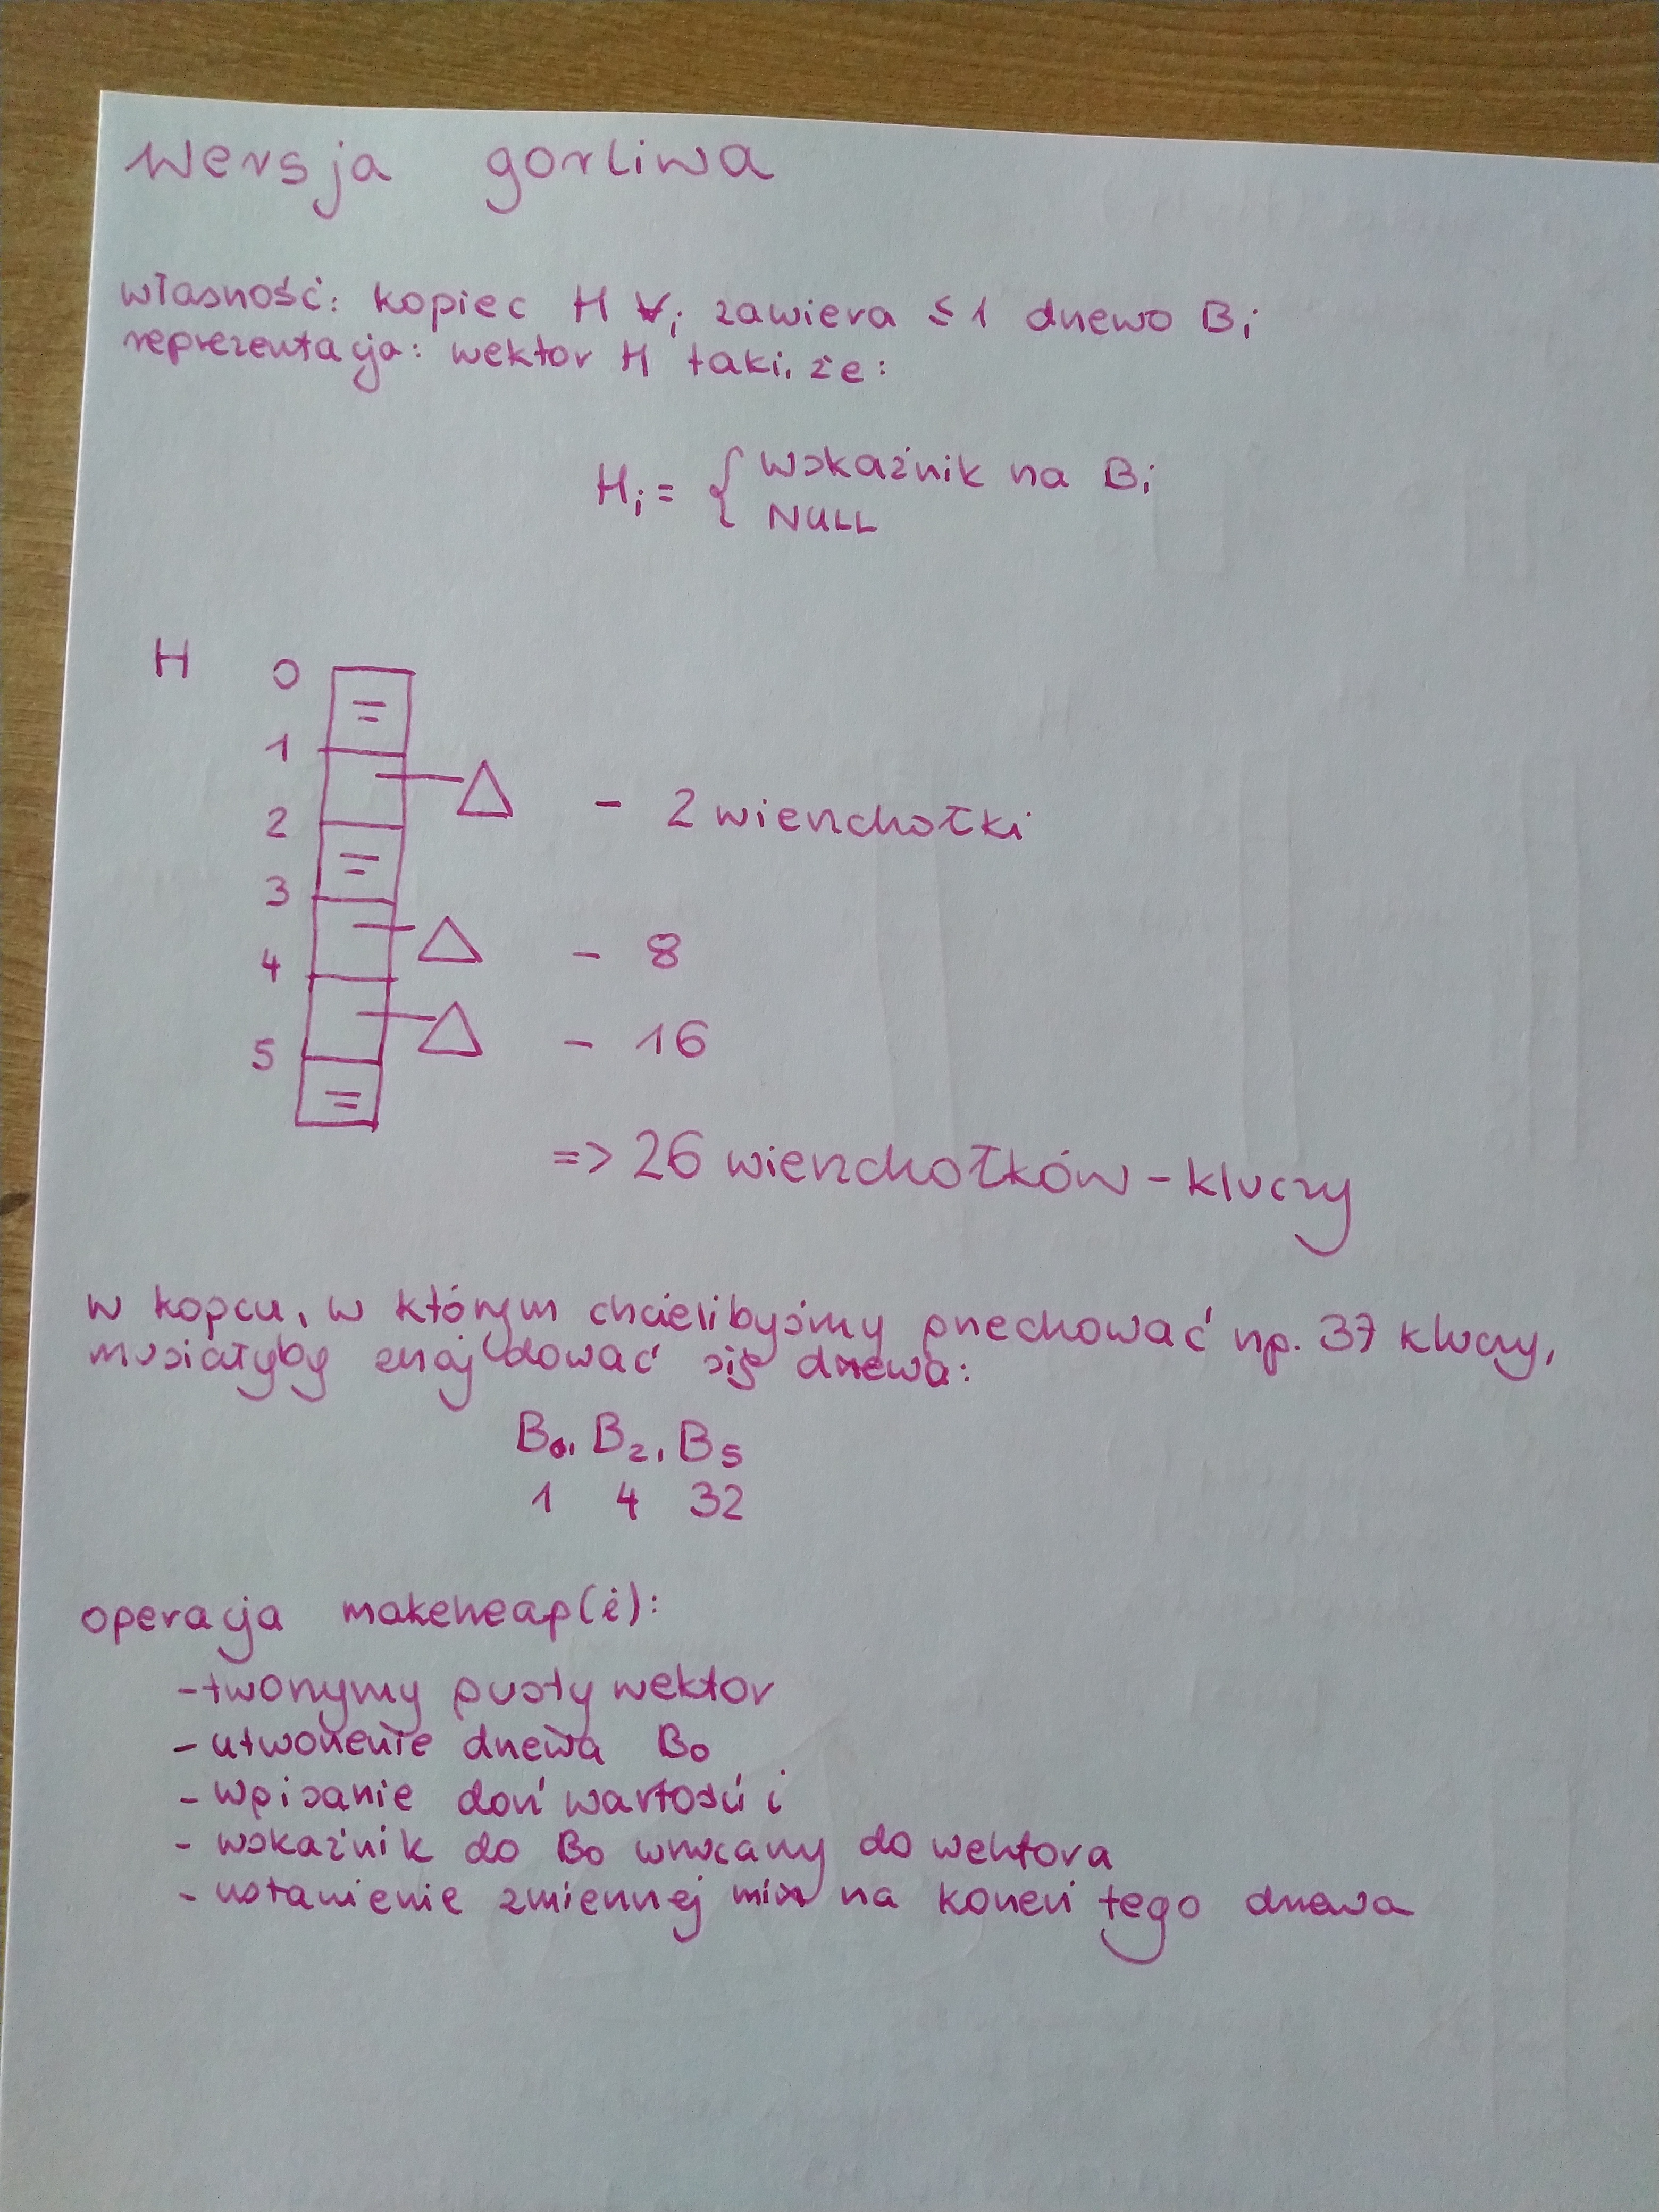 wersja gorliwa
własność: kopiec H ∀i zawiera ≤ 1 drzewo Bi
reprezentacja: wektor H taki, że:
Hi = { wskaźnik na Bi
NULL
H 0 =
1
- 2 wierzchołki
2 =
3
- 8
4
- 16
5 =
=> 26 wierzchołków - kluczy
w kopcu, w którym chcielibyśmy przechować np. 37 kluczy,
musiałyby znajdować się drzewa:
B0, B2, B5
1 4 32
operacja makeheap(i):
- tworzymy pusty wektor
- utworzenie drzewa B0
- wpisanie doń wartości i
- wskaźnik do B0 wrzucany do wektora
- ustawienie zmiennej min na korzeń tego drzewa